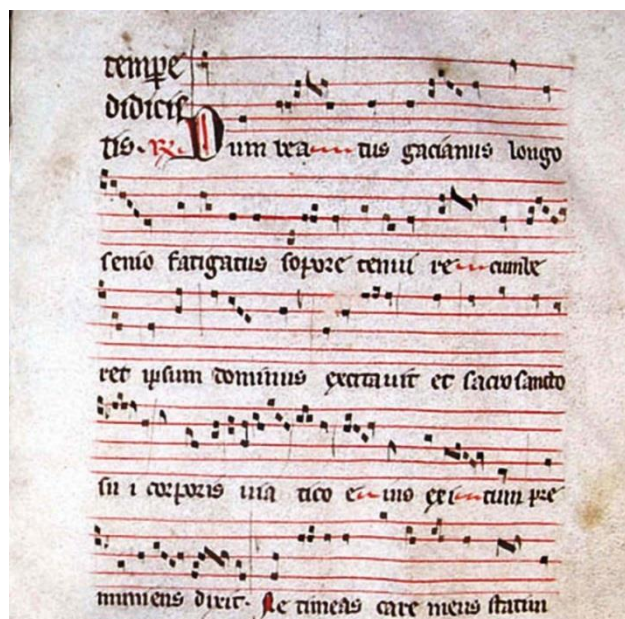 tempe
didicis
tis. R. Dum bea tus gacianus longo
senio fatigatus sopore tenui re cumbe
ret ipsum dominus excitavit et sacro sancto
su i corporis via tico e ius exi tum pre
muniens dixit. Ne timeas care meus statim